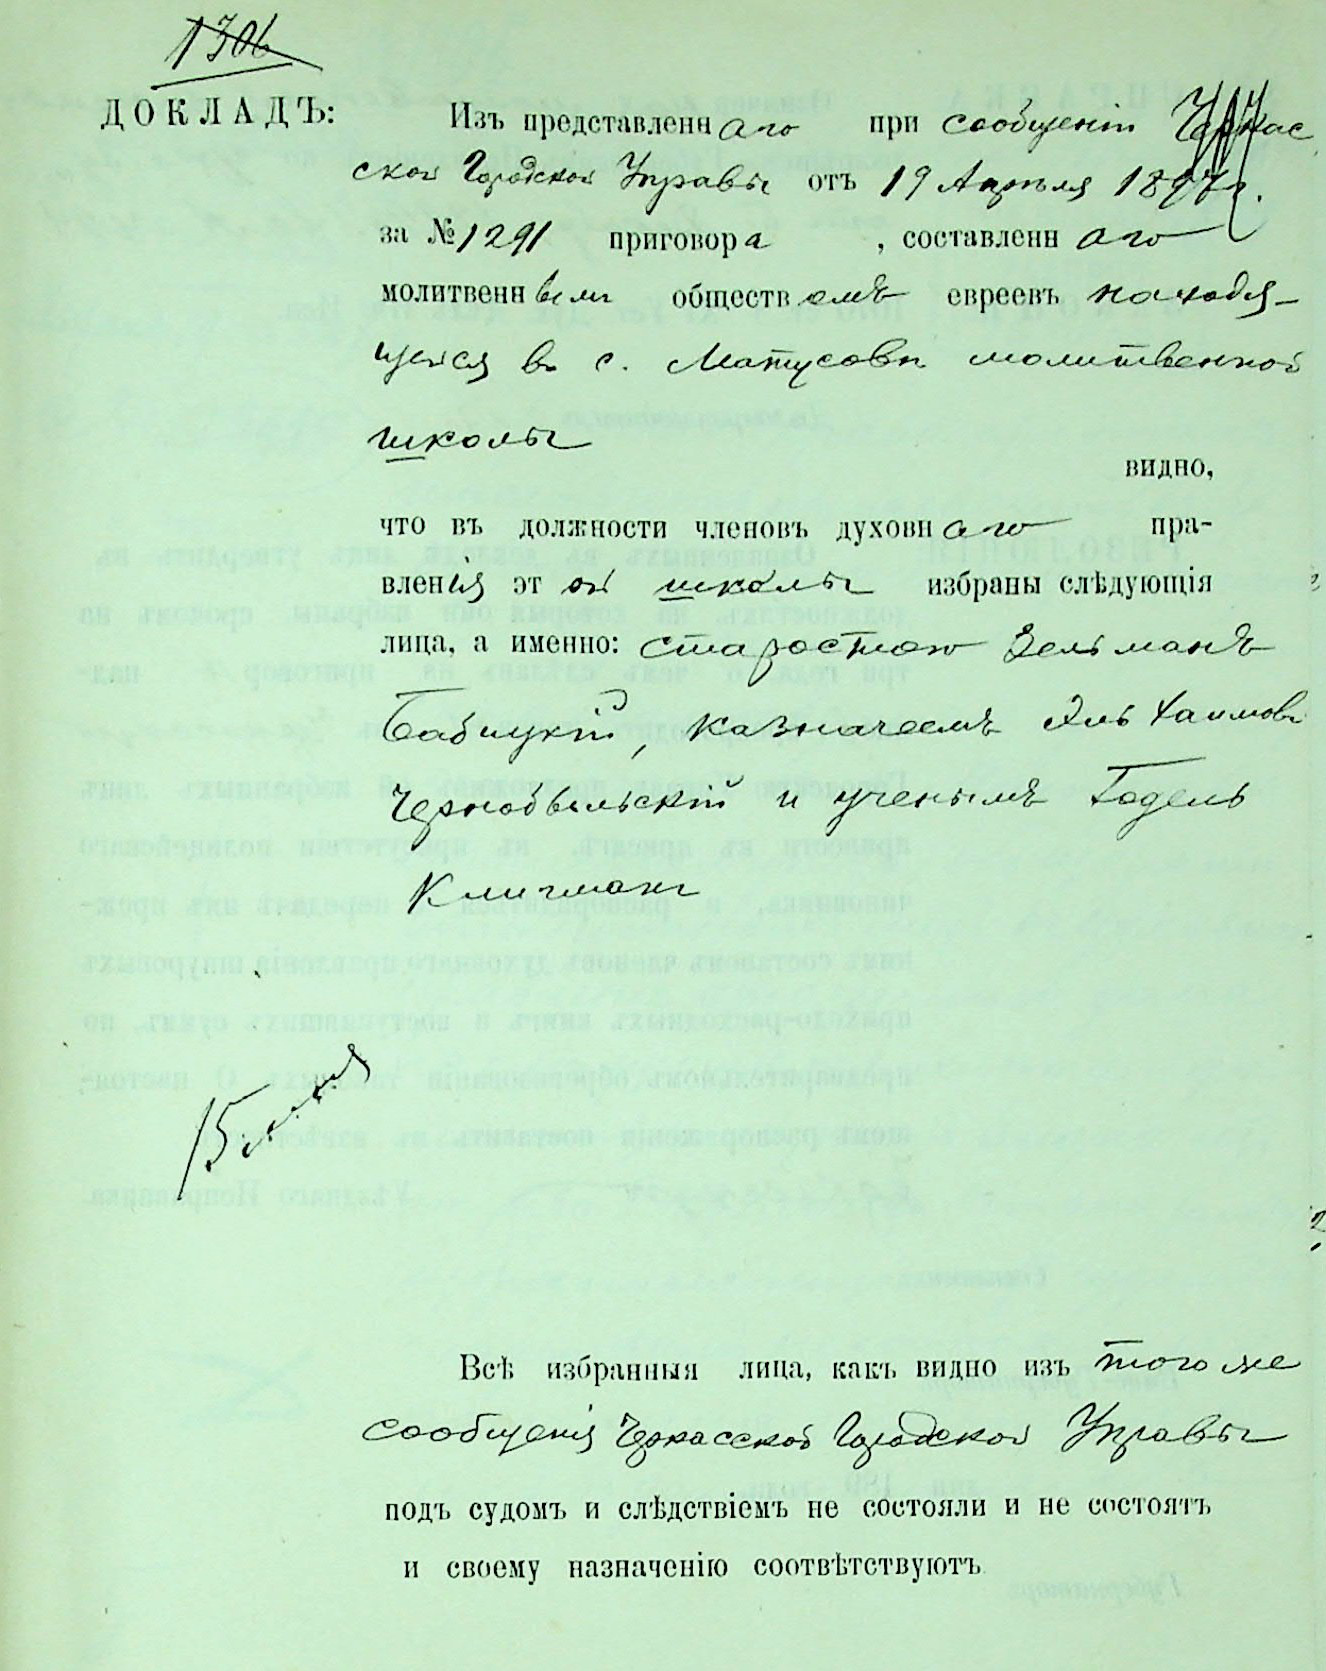 1306
ДОКЛАДЪ:
Изъ представленнаго при сообщеніи Черкас
ской Городской Управы отъ 19 Апрѣля 1897 г.
за № 1291 приговора, составленнаго
молитвеннымъ обществомъ евреевъ находя-
щейся въ с. Матусовѣ молитвенной
школы
видно,
что въ должности членовъ духовнаго пра-
вленія этой школы избраны слѣдующія
лица, а именно: старостою Зельманъ
Бабицкій, казначеемъ Эль Хаимовъ
Чернобыльскій и ученымъ Годель
Клигманъ
Всѣ избранныя лица, какъ видно изъ того же
сообщенія Черкасской Городской Управы
подъ судомъ и слѣдствіемъ не состояли и не состоятъ
и своему назначенію соотвѣтствуютъ.